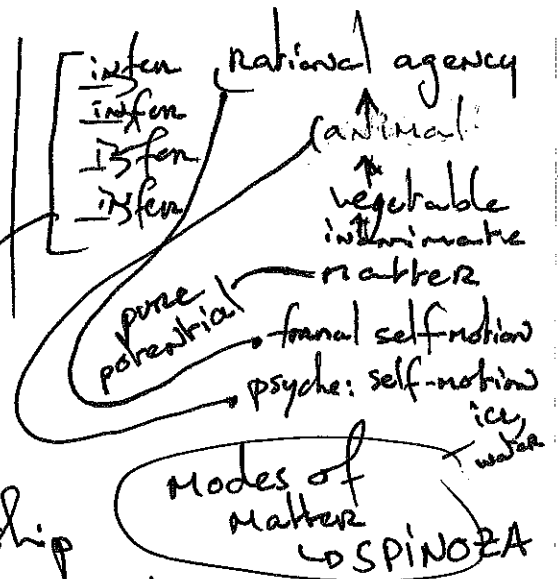 infer
infer
infer
infer
rational agency
animal
vegetable
inanimate
matter
pure
potential
formal self-motion
psyche: self-motion
ice,
water
Modes of
Matter
↳ SPINOZA
hip